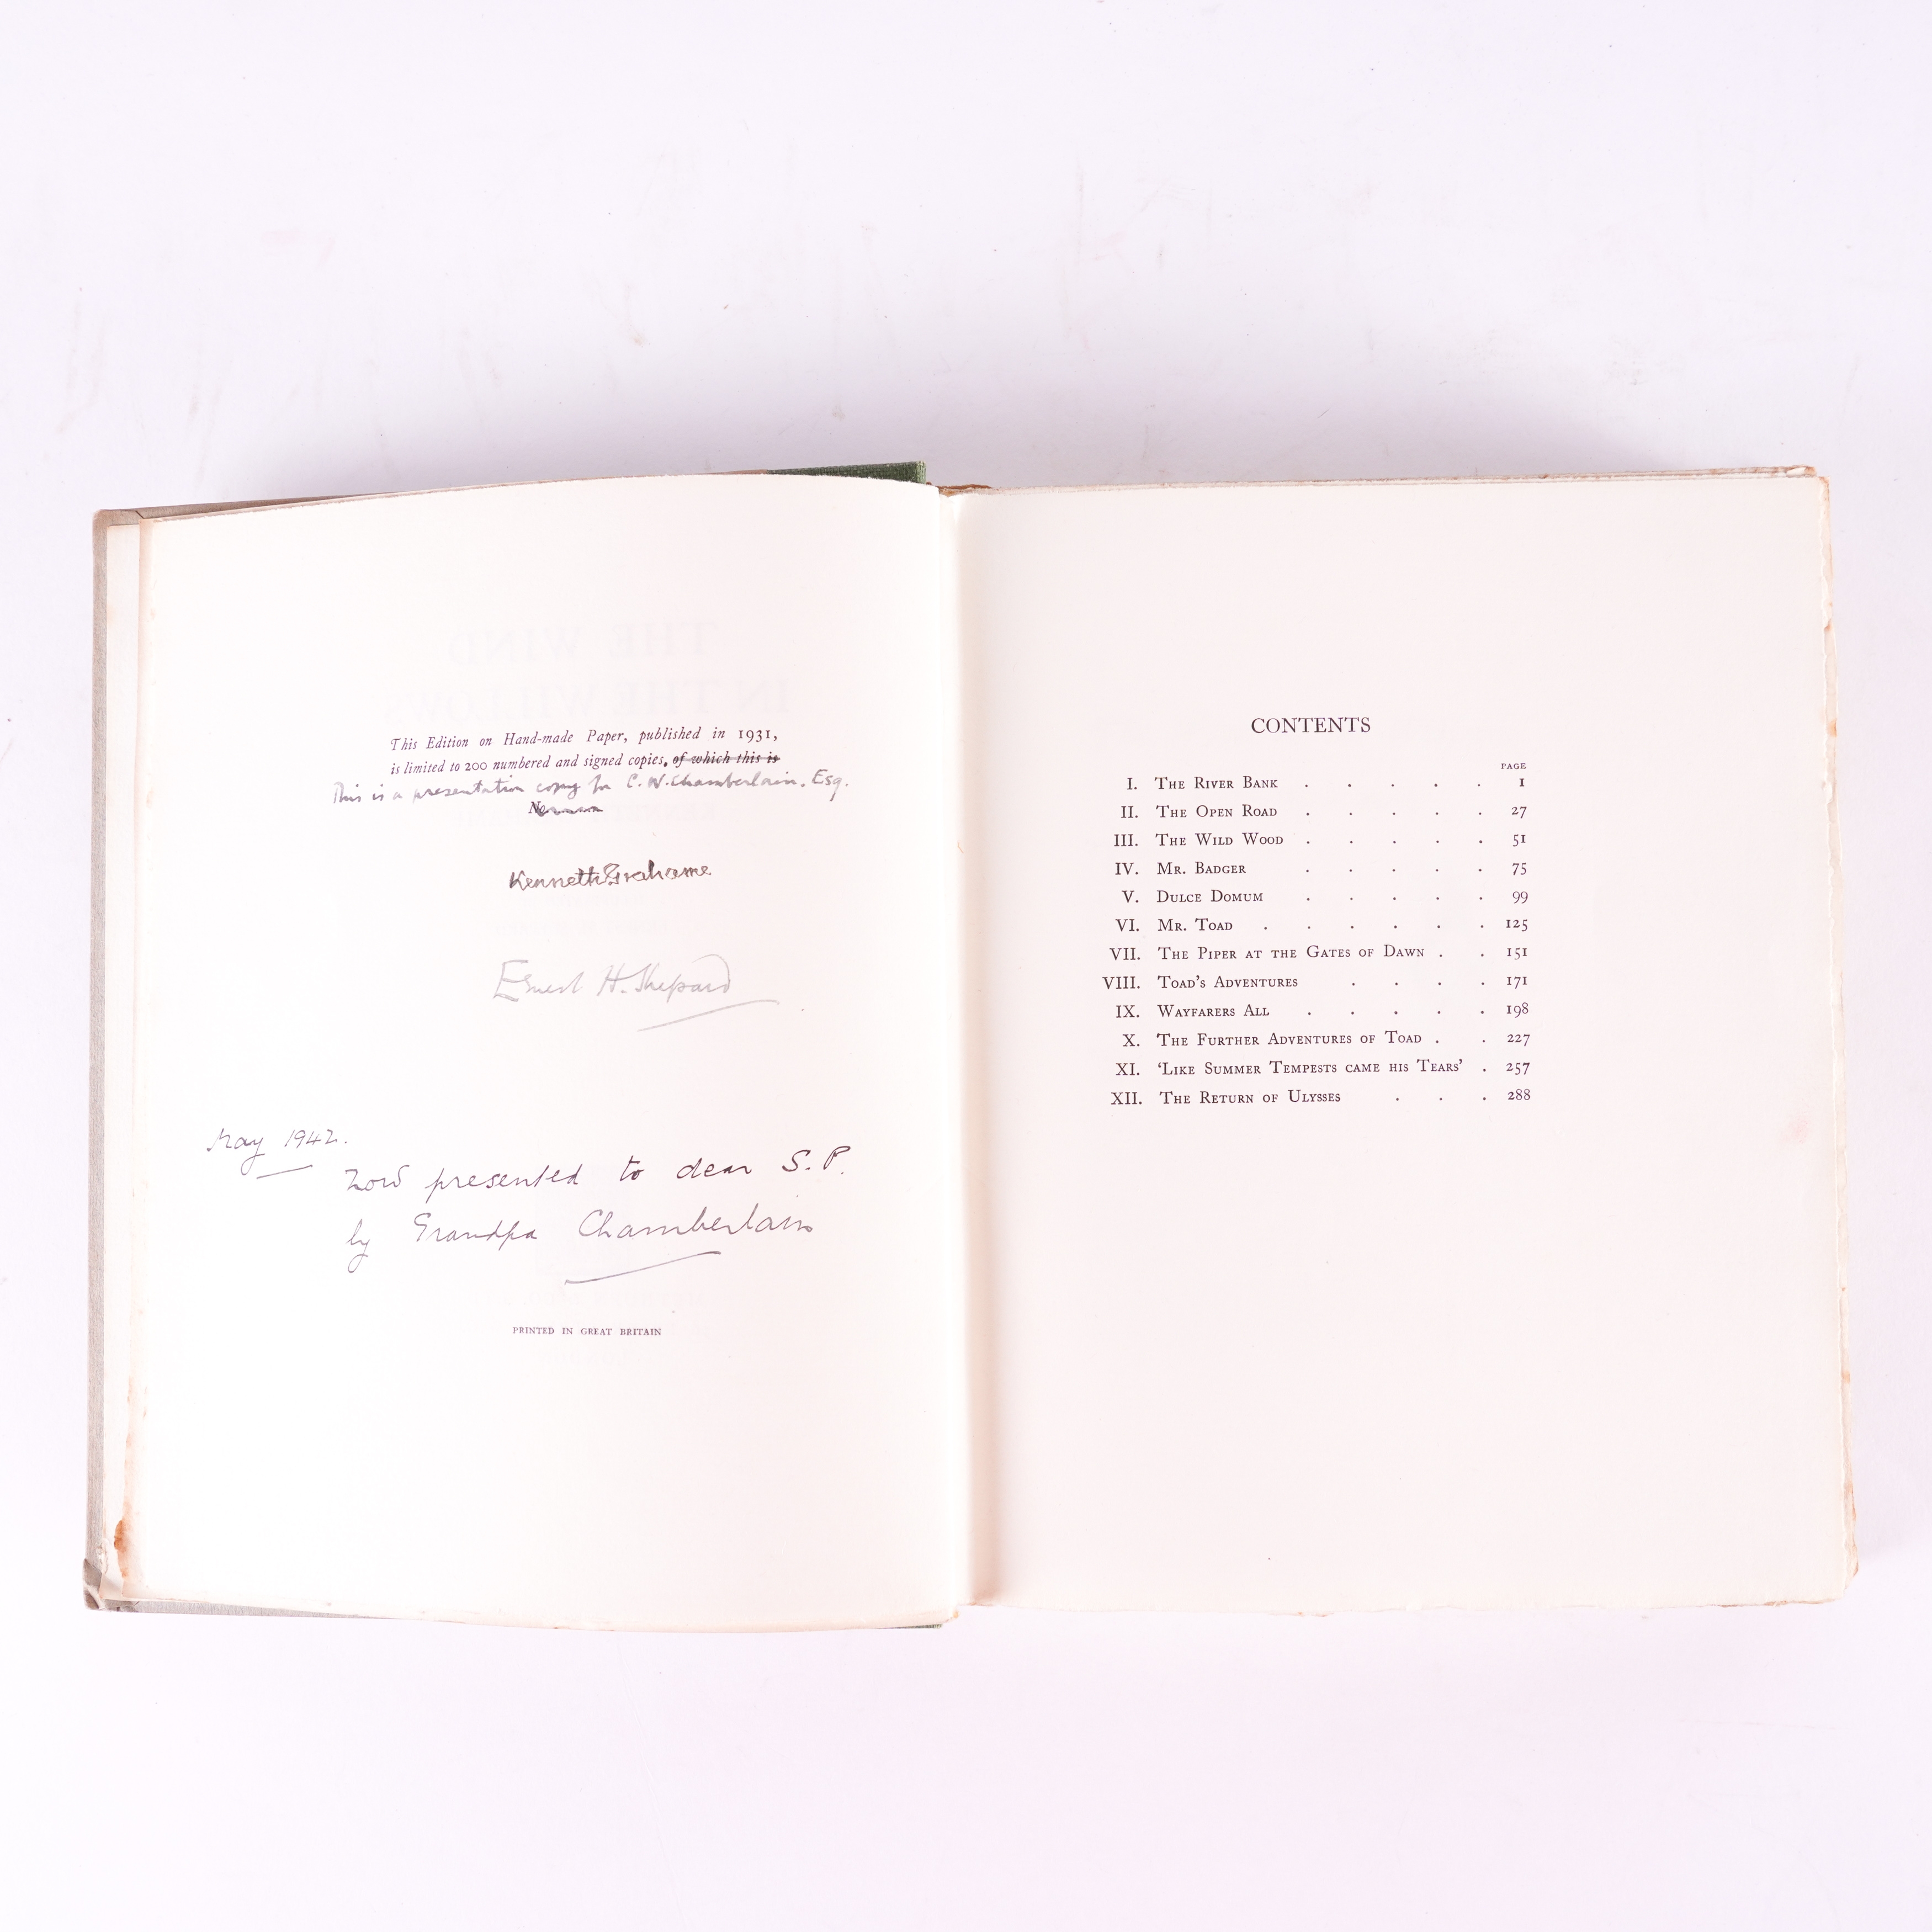 This Edition on Hand-made Paper, published in 1931,
is limited to 200 numbered and signed copies, of which this is
This is a presentation copy for C. W. Chamberlain. Esq.
Kenneth Grahame
Ernest H. Shepard
May 1942.
Now presented to dear S. P.
by Grandpa Chamberlain
PRINTED IN GREAT BRITAIN
CONTENTS
PAGE
I. The River Bank . . . . . 1
II. The Open Road . . . . . 27
III. The Wild Wood . . . . . 51
IV. Mr. Badger . . . . . 75
V. Dulce Domum . . . . . 99
VI. Mr. Toad . . . . . . 125
VII. The Piper at the Gates of Dawn . . 151
VIII. Toad's Adventures . . . . 171
IX. Wayfarers All . . . . . 198
X. The Further Adventures of Toad . . 227
XI. ‘Like Summer Tempests came his Tears’ . 257
XII. The Return of Ulysses . . . 288